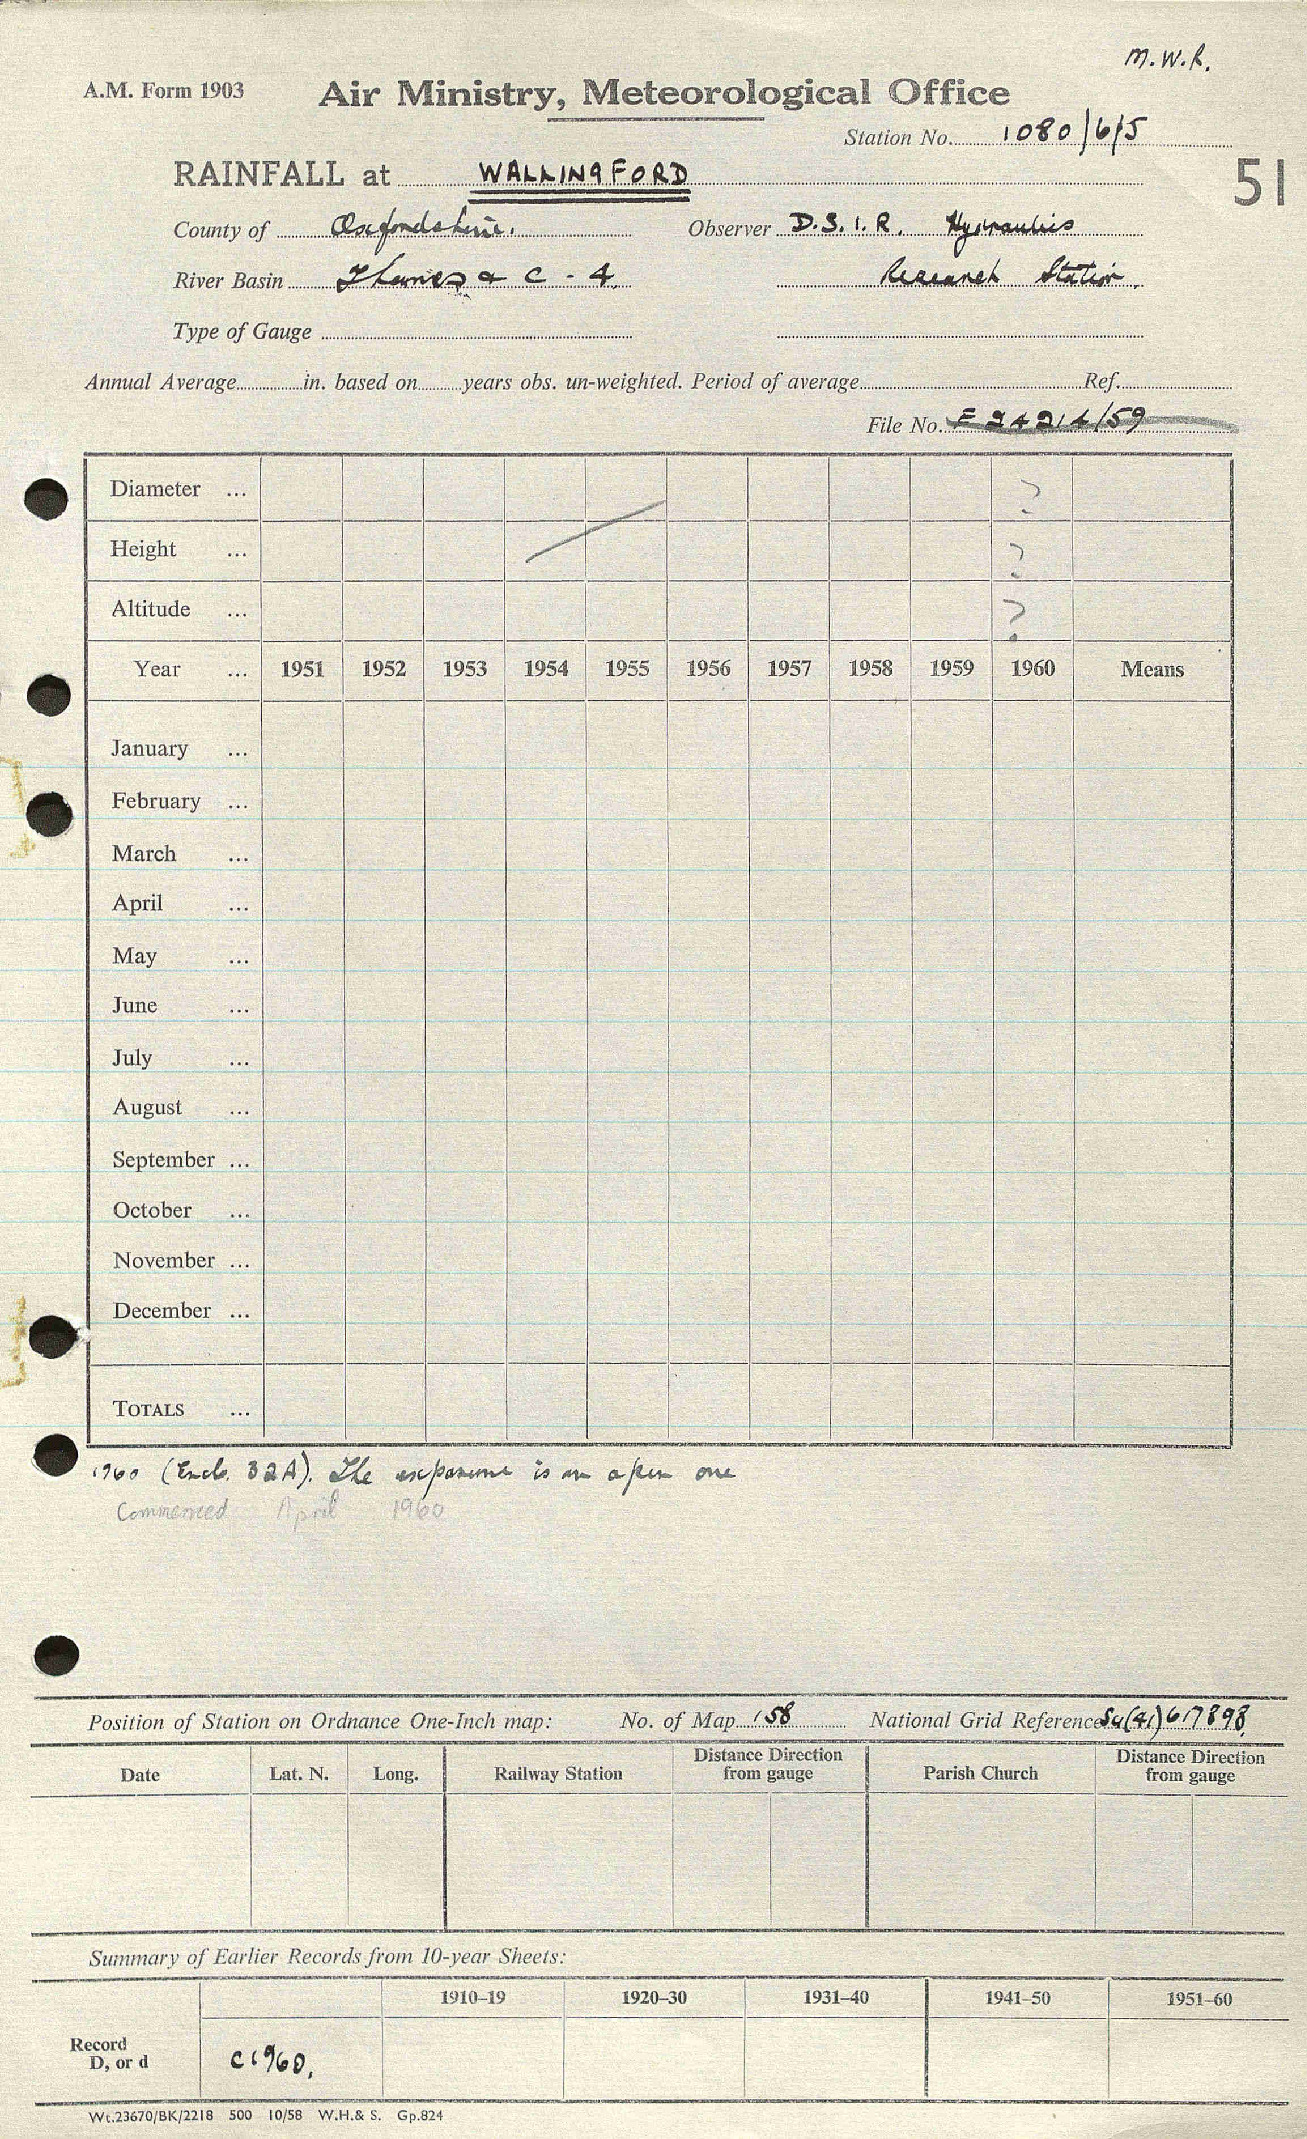 M.W.R.
A.M. Form 1903 Air Ministry, Meteorological Office
Station No. 1080/6/5
RAINFALL at WALLINGFORD 51
County of Oxfordshire. Observer D.S.I.R. Hydraulics
River Basin Thames & C - 4 Research Station.
Type of Gauge
Annual Average in. based on years obs. un-weighted. Period of average Ref.
File No. F 24214/59
Diameter ... ?
Height ... ?
Altitude ... ?
Year ... 1951 1952 1953 1954 1955 1956 1957 1958 1959 1960 Means
January ...
February ...
March ...
April ...
May ...
June ...
July ...
August ...
September ...
October ...
November ...
December ...
TOTALS ...
1960 (Encl. 32A). The exposure is an open one
Commenced April 1960
Position of Station on Ordnance One-Inch map: No. of Map 158 National Grid Reference SU(41)617898
Date Lat. N. Long. Railway Station Distance Direction from gauge Parish Church Distance Direction from gauge
Summary of Earlier Records from 10-year Sheets:
1910–19 1920–30 1931–40 1941–50 1951–60
Record
D, or d C1960.
Wt.23670/BK/2218 500 10/58 W.H.& S. Gp.824